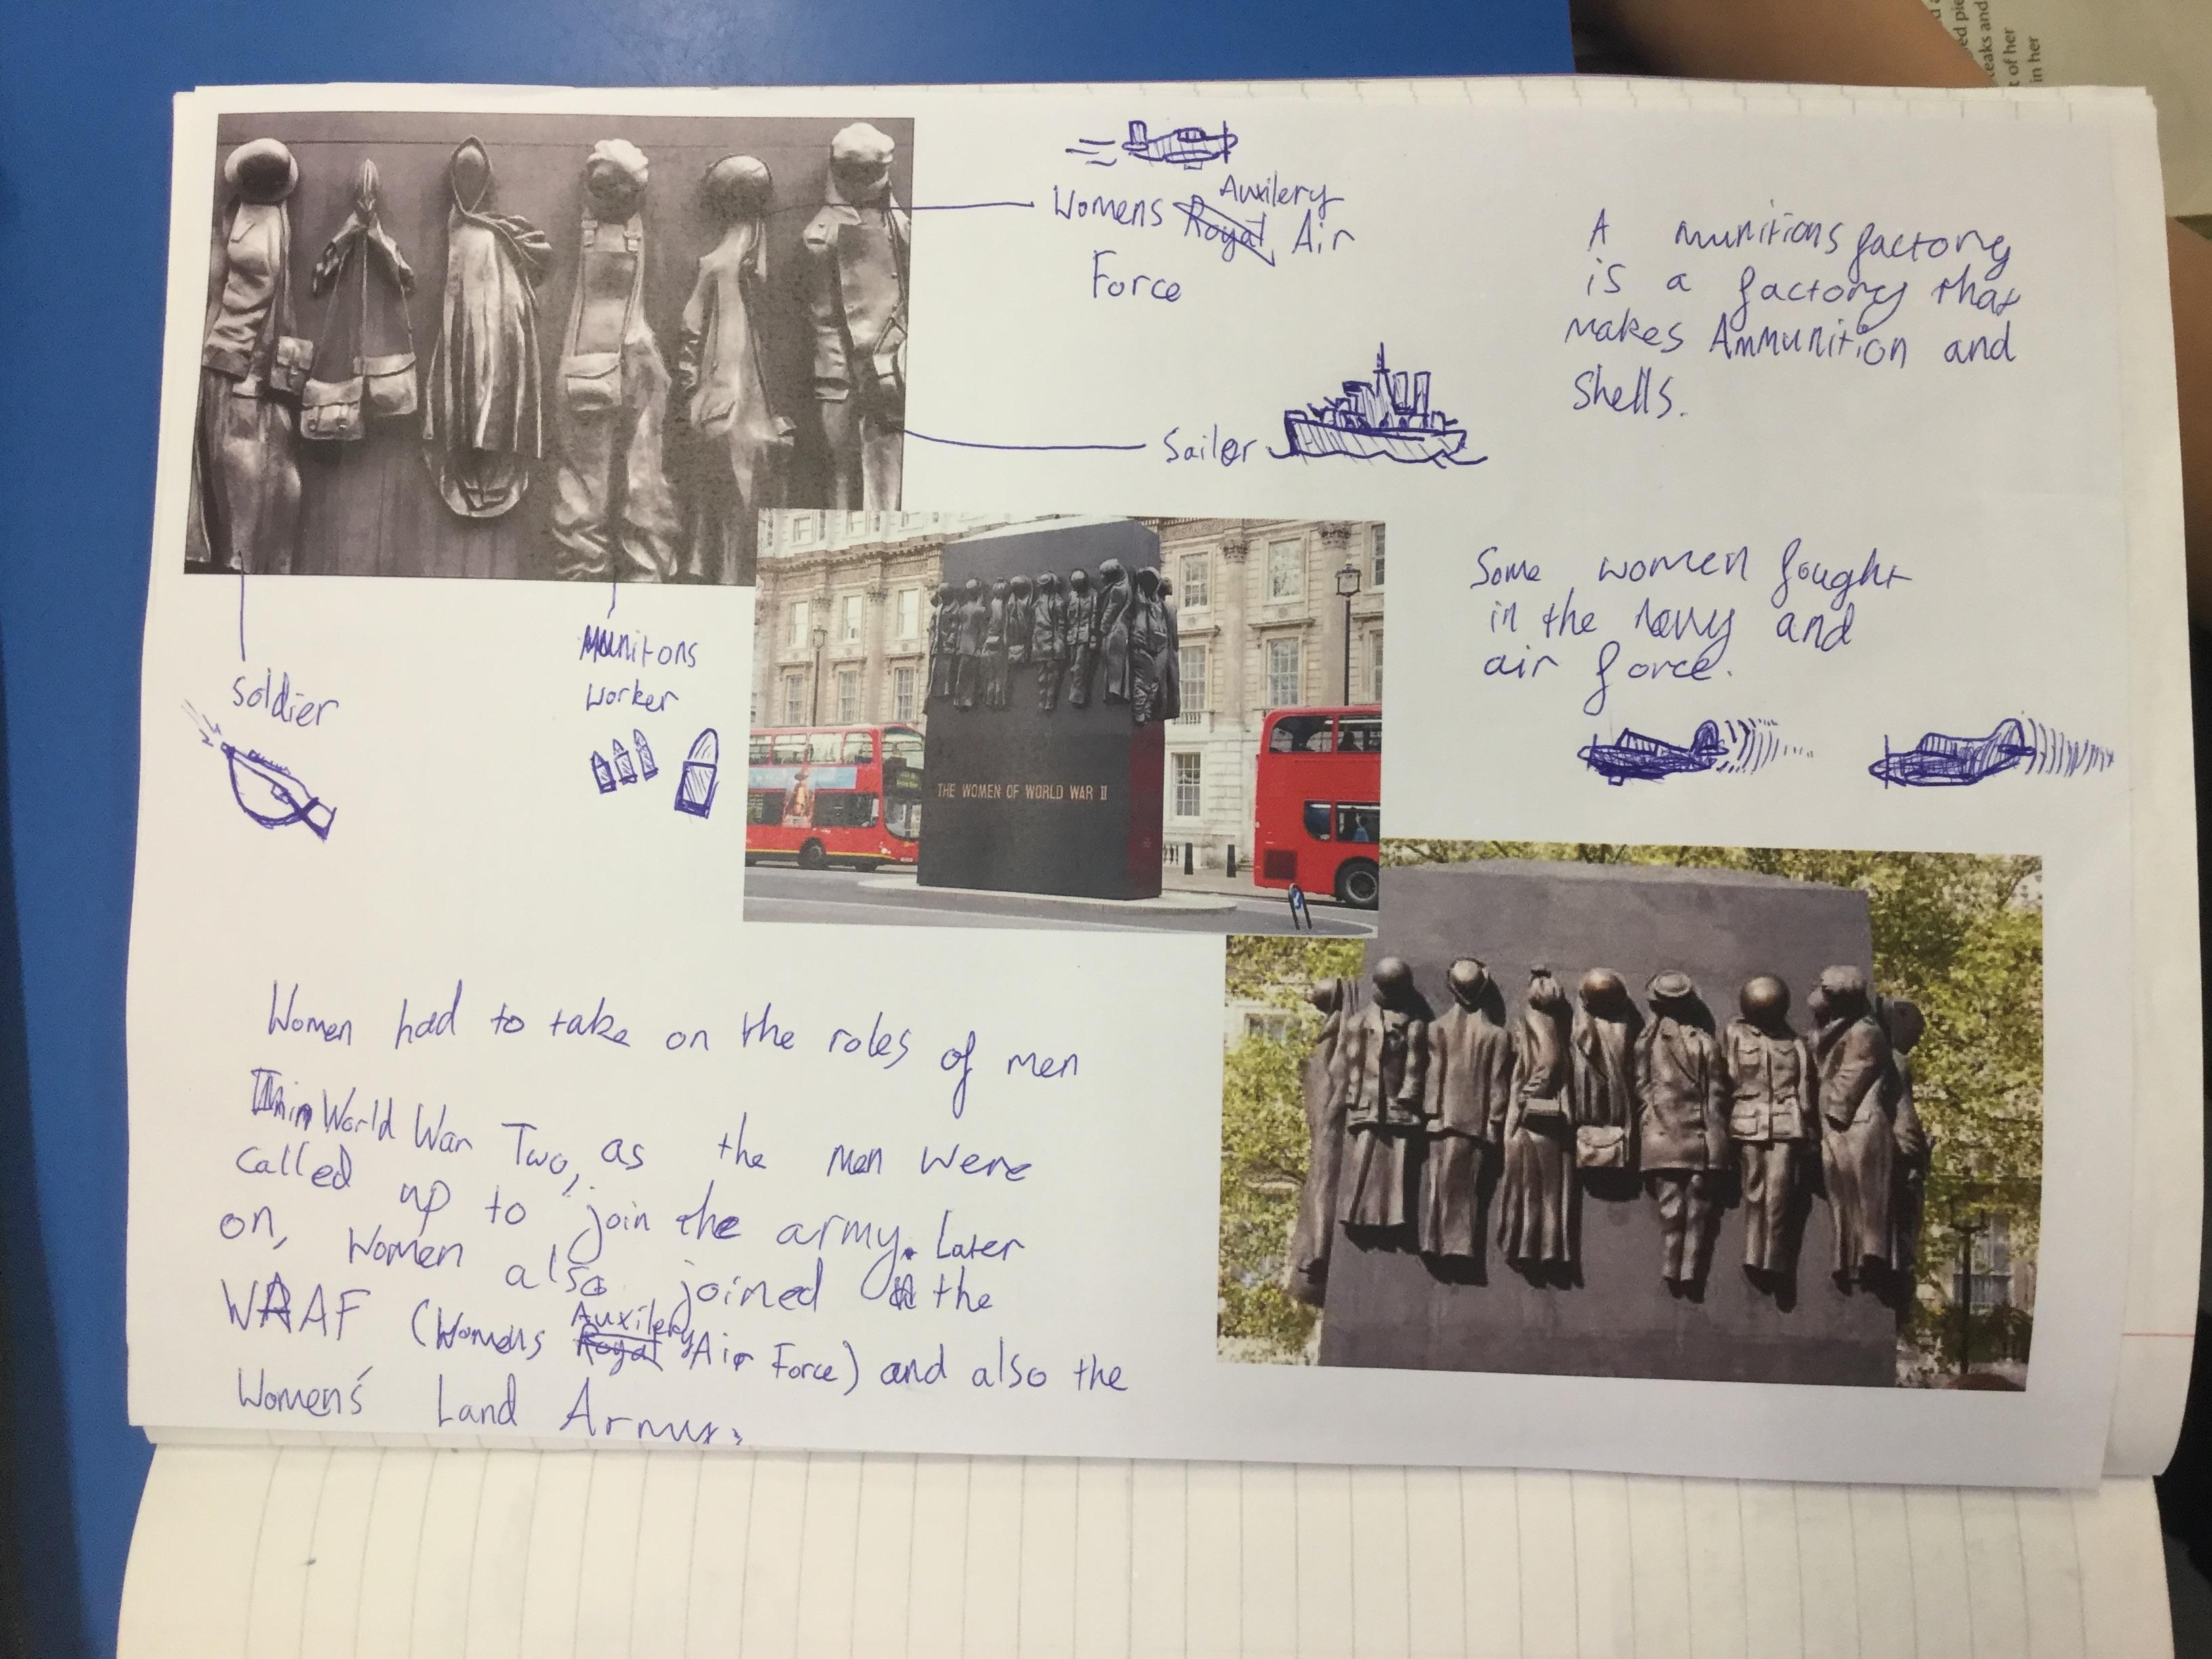 Auxilery
Womens Royal Air
Force
A munitions factory
is a factory that
makes Ammunition and
Shells.
Sailor
Some women fought
in the navy and
air force.
Soldier
Munitons
Worker
THE WOMEN OF WORLD WAR II
Women had to take on the roles of men
in World War Two, as the men were
called up to join the army. Later
on, Women also joined the
WAAF (Womens Auxilery Royal Air Force) and also the
Women's Land Army.
ed pie
teaks and
t of her
in her